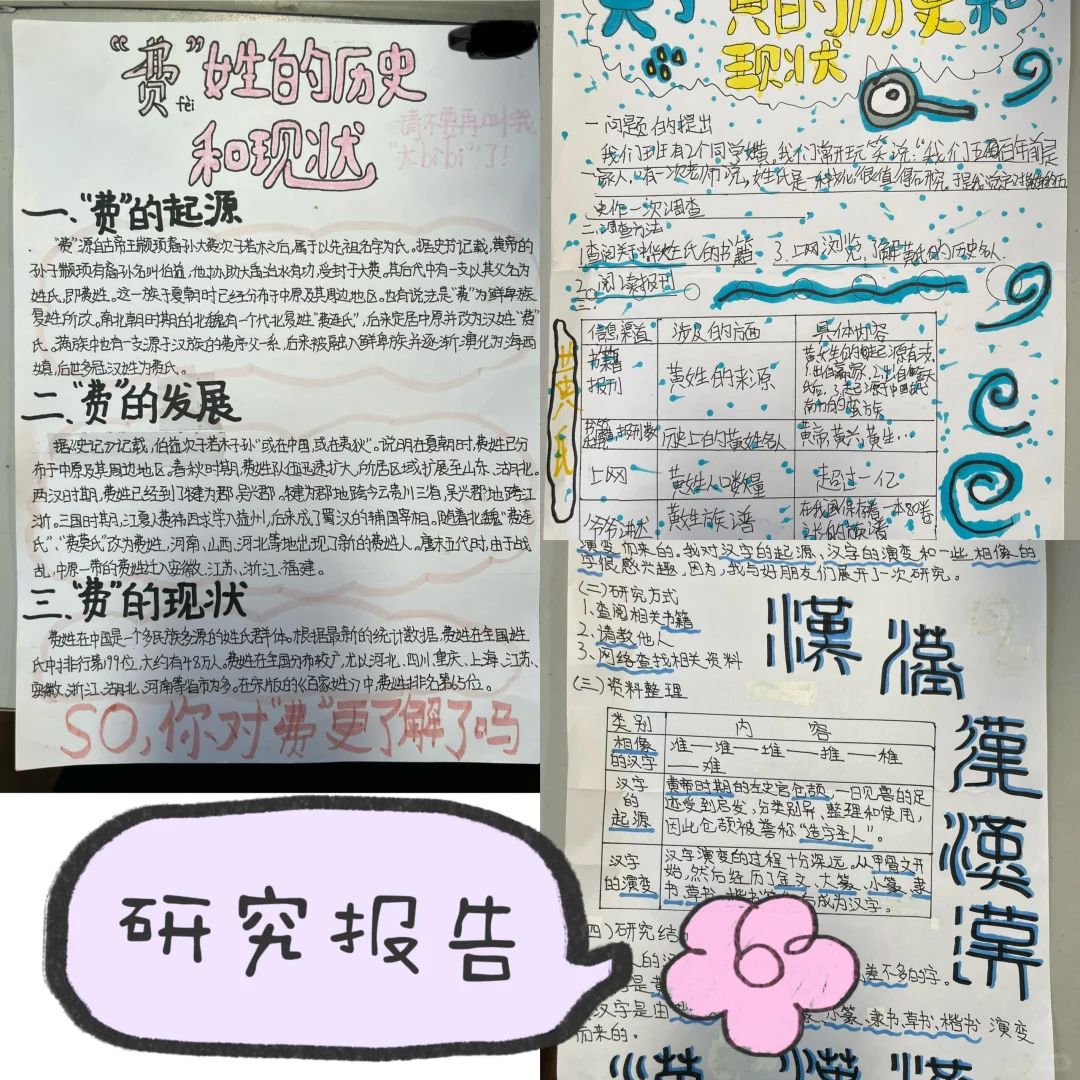 “费”姓的历史
fèi
和现状
请不要再叫我
“大bìbì”了!
一、“费”的起源
“费”源自古帝王颛顼裔孙大费次子若木之后,属于以先祖名字为氏。据史书记载,黄帝的
孙子颛顼有裔孙名叫伯益,他协助大禹治水有功,受封于大费。其后代中有一支以其父名为
姓氏,即费姓。这一族于夏朝时已经分布于中原及其周边地区。也有说法是“费”为鲜卑族
复姓所改。南北朝时期的北魏有一个代北复姓“费连氏”,后来定居中原并改为汉姓“费”
氏。满族中也有一支源于汉族的费序父系,后来被融入鲜卑族并逐渐演化为海西
嫃,后世多冠汉姓为费氏。
二、“费”的发展
据《史记》记载,伯益次子若木子孙“或在中国,或在夷狄”。说明在夏朝时,费姓已分
布于中原及其周边地区。春秋时期,费姓队伍迅速扩大,所居区域扩展至山东、湖北。
两汉时期,费姓已经到了犍为郡、吴兴郡。犍为郡地跨今云贵川三省,吴兴郡地跨江
浙。三国时期,江夏人费祎西求学入益州,后来成了蜀汉的辅国宰相。随着北魏“费连
氏”、“费莫氏”改为费姓,河南、山西、河北等地出现了新的费姓人。唐末五代时,由于战
乱,中原一带的费姓迁入安徽、江苏、浙江、福建。
三、“费”的现状
费姓在中国是一个多民族多源的姓氏群体。根据最新的统计数据,费姓在全国姓
氏中排行第199位,大约有48万人。费姓在全国分布较广,尤以河北、四川、重庆、上海、江苏、
安徽、浙江、湖北、河南等省市为多。在宋版的《百家姓》中费姓排名第65位。
SO,你对“费”更了解了吗
关于黄的历史和
现状
一问题的提出
我们班有2个同学姓黄。我们常开玩笑说:“我们五百年前是
一家人。”有一次老师说,姓氏是一种文化,很值得研究。于是我决定对黄姓的历
史作一次调查
二调查方法
1.查阅关于姓氏的书籍 3.上网浏览,了解黄氏的历史名人
2.阅读报刊
三
黄氏
信息渠道 涉及的方面 具体内容
书籍
报刊 黄姓的来源
历史上的黄姓名人 黄帝、黄兴、黄生…
上网 黄姓人口数量 超过一亿
爷爷讲述 黄姓族谱 在我国保存着一本80卷
演变而来的。我对汉字的起源、汉字的演变和一些相像的
字很感兴趣,因为,我与好朋友们展开了一次研究。
(二)研究方式
1.查阅相关书籍
2、请教他人
3、网络查找相关资料
(三)资料整理
漢
漢
漢
漢
漢
类别 内容
相像的汉字 准—淮—堆—推—椎—难
汉字的起源 黄帝时期的左史官仓颉,一日见兽的足
迹受到启发,分类别异、整理和使用,
因此仓颉被尊称“造字圣人”。
汉字的演变 汉字演变的过程十分深远。从甲骨文开
始,然后经历了金文、大篆、小篆、隶
书、草书、成为汉字。
(四)研究结
差不多的字。
汉字是由 小篆、隶书、草书、楷书演变
而来的。
研究报告